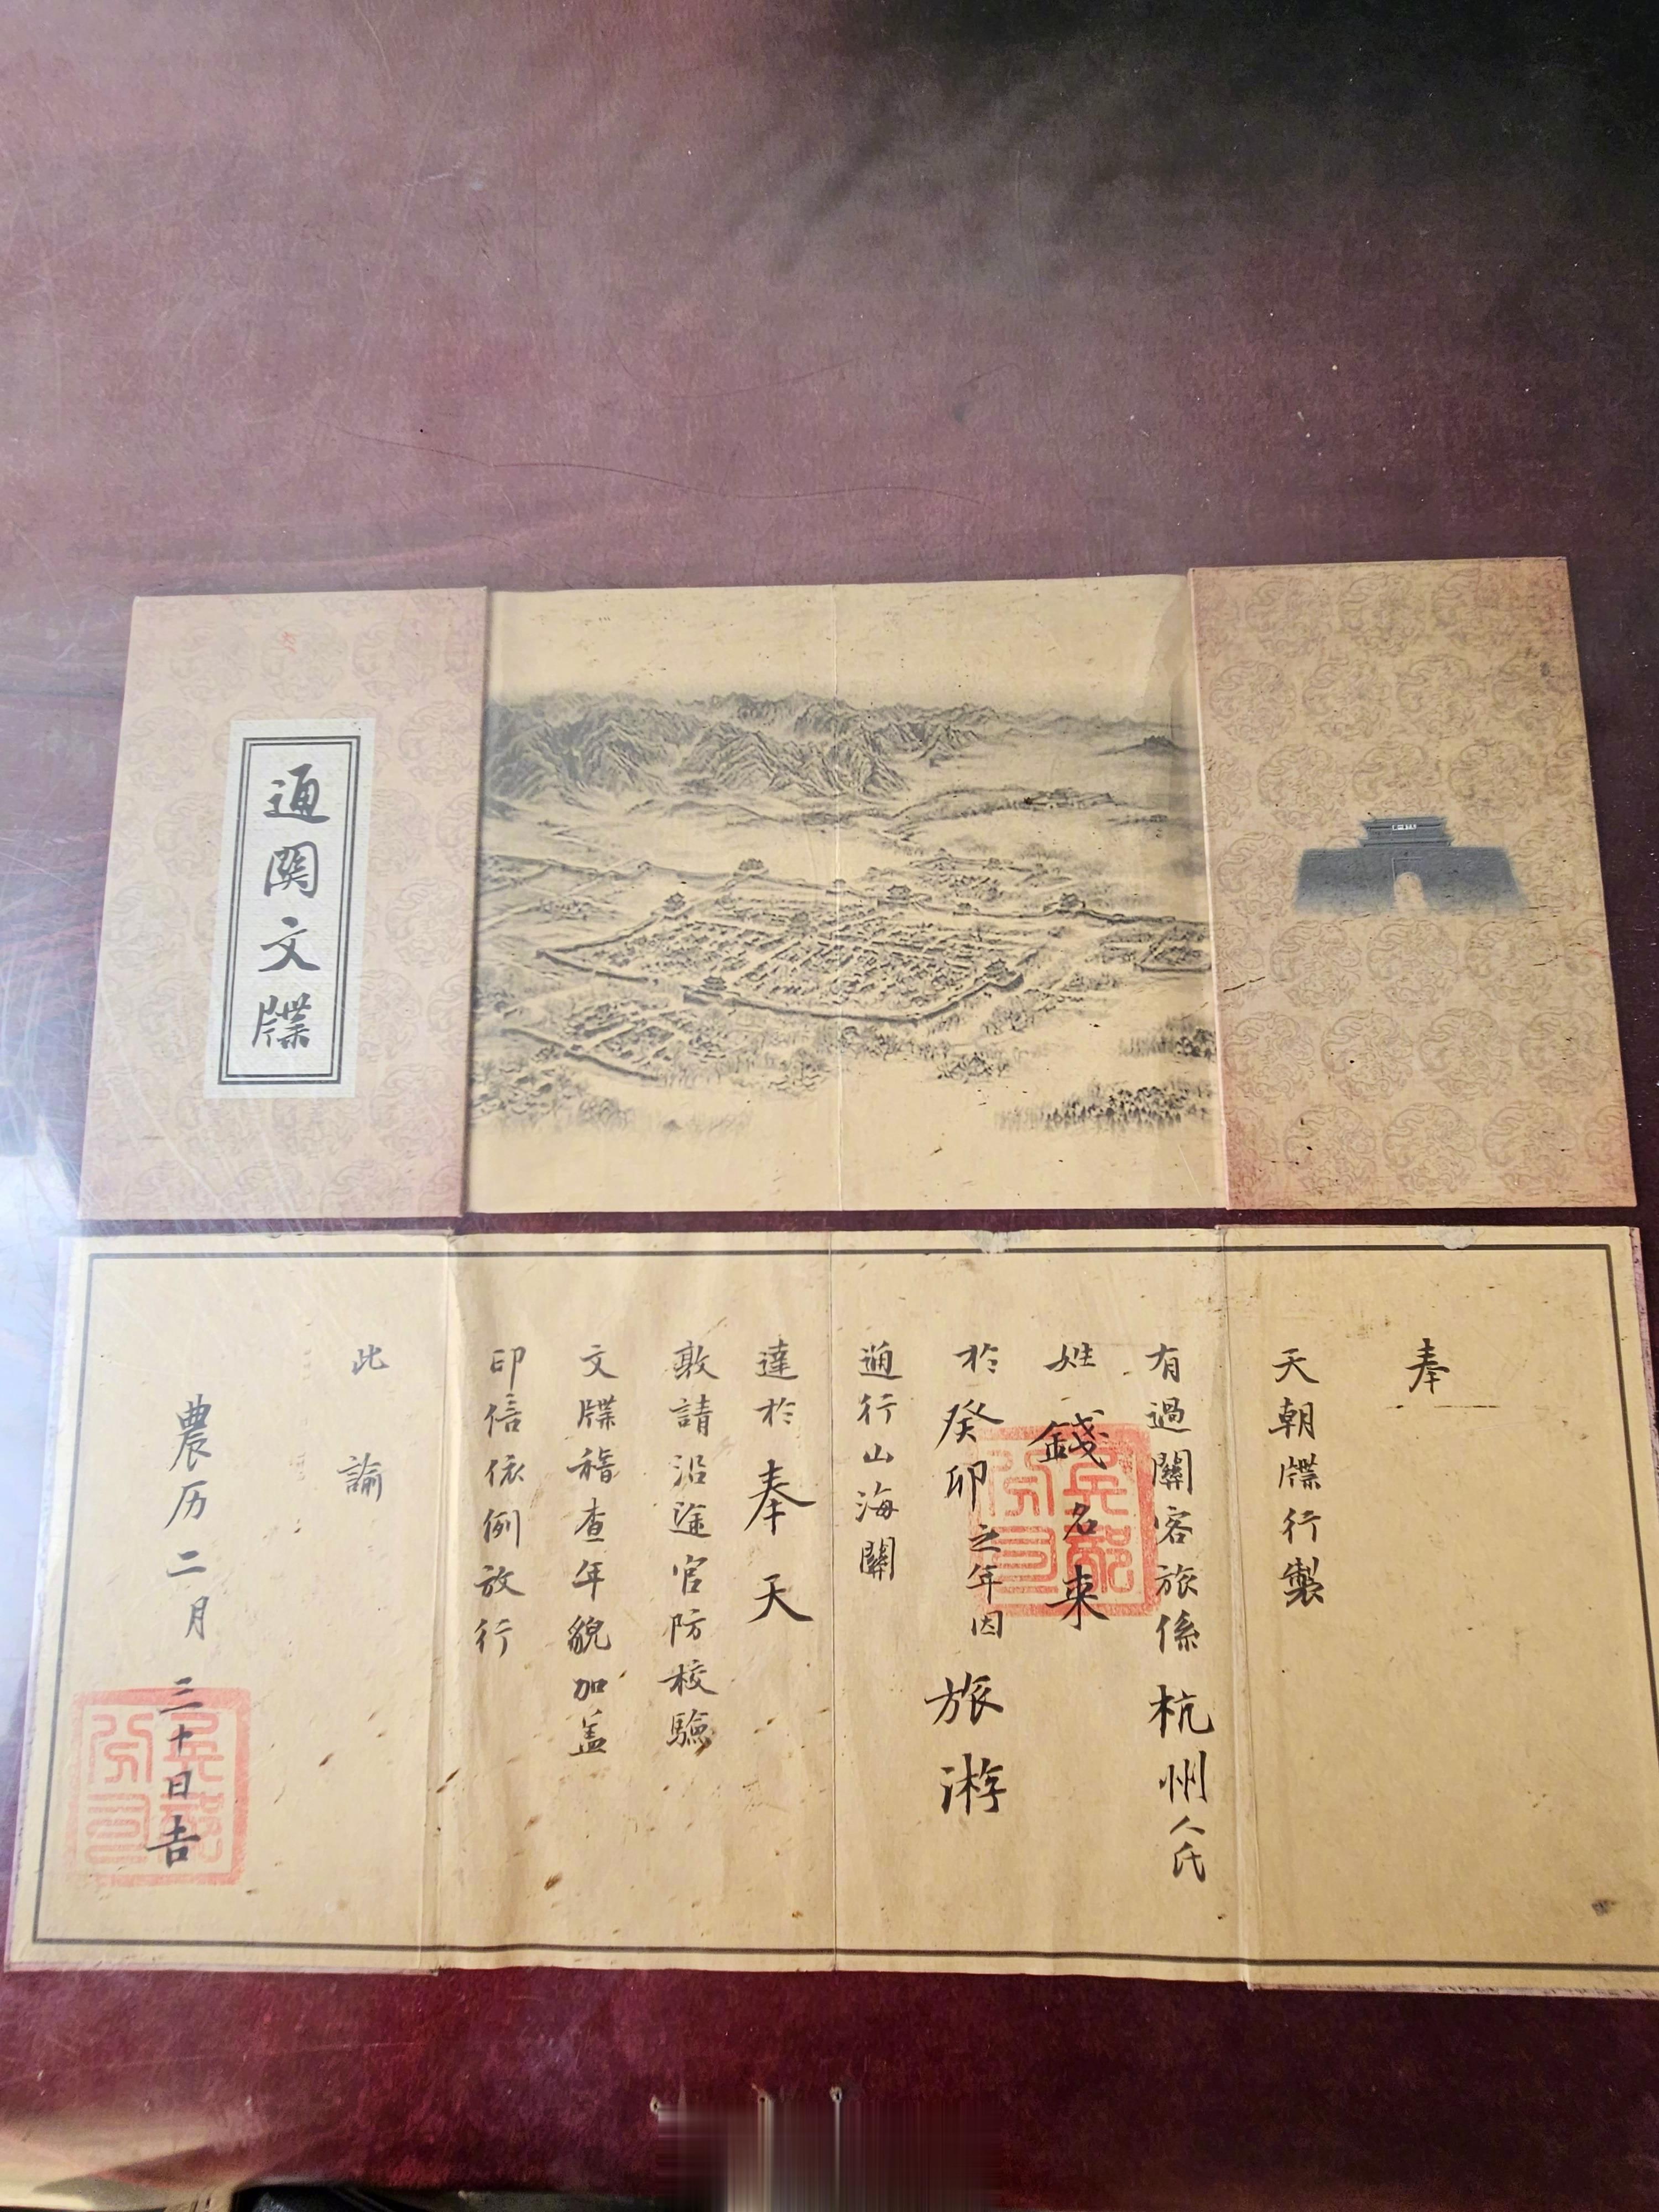 通關文牒
奉
天朝牒行製
有過關客旅係杭州人氏
姓錢名来
於癸卯之年因旅游
通行山海關
達於奉天
敦請沿途官防校驗
文牒稽查年貌加盖
印信依例放行
此諭
農历二月三十日吉